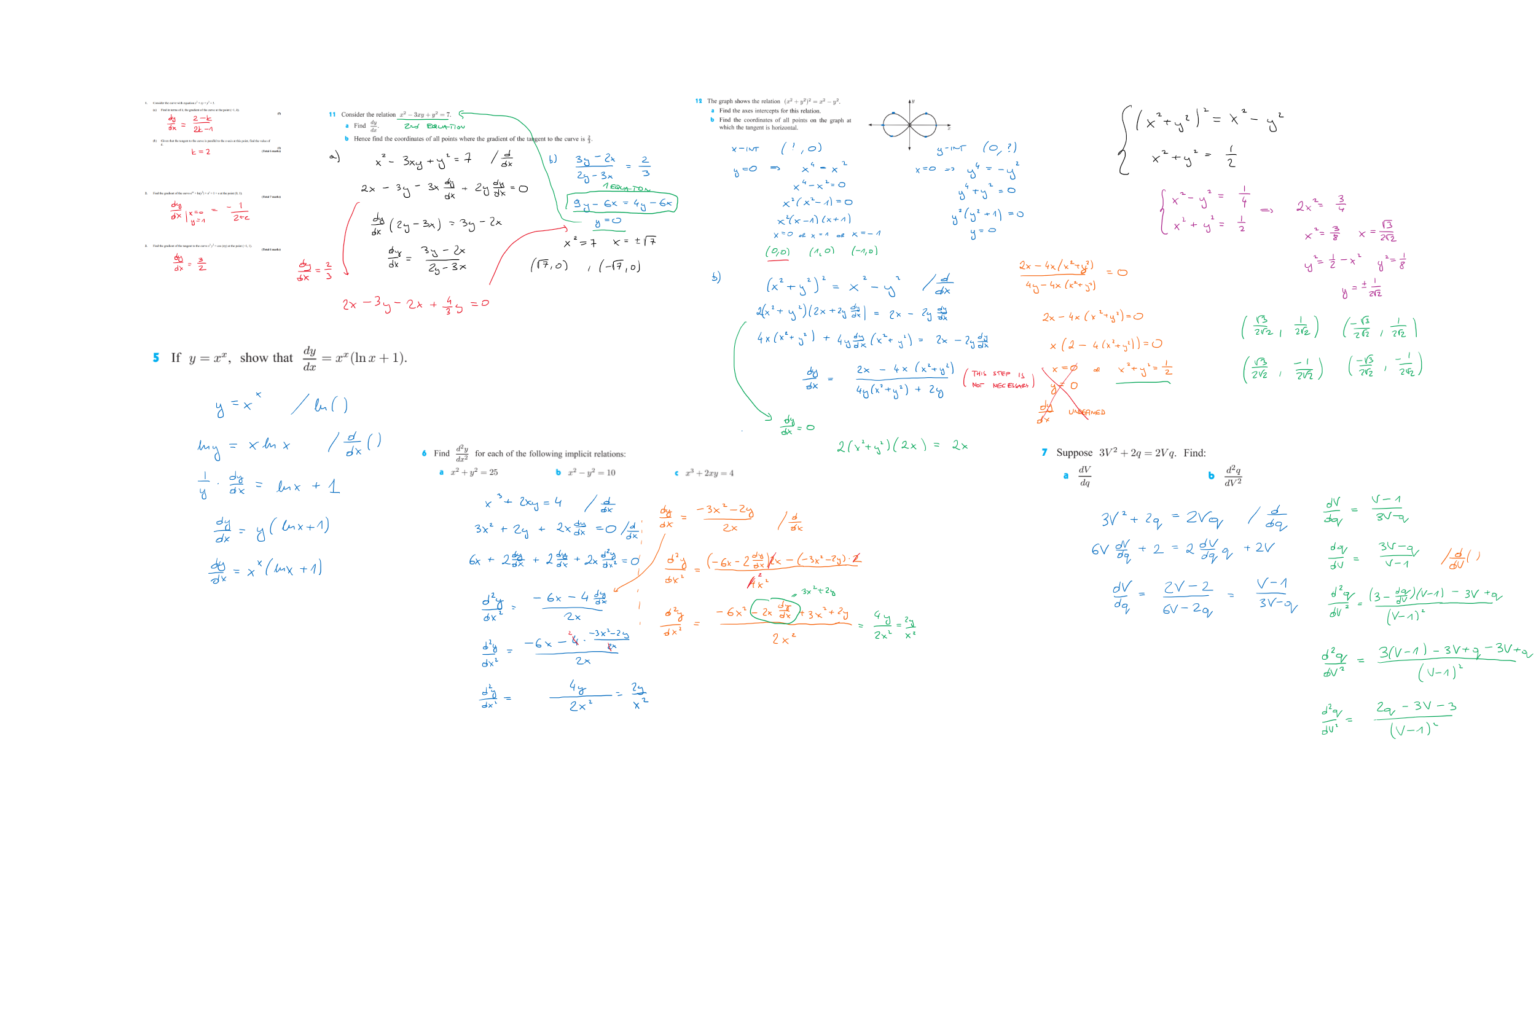 dy/dx = (2-k)/(2k-1)
k = 2
dy/dx | x=∞ y=1 = -1/(2+e)
dy/dx = 3/2
11 Consider the relation x² − 3xy + y² = 7.
2ND EQUATION
a Find dy/dx.
b Hence find the coordinates of all points where the gradient of the tangent to the curve is 2/3.
a)
x² - 3xy + y² = 7 / d/dx
2x - 3y - 3x dy/dx + 2y dy/dx = 0
dy/dx (2y - 3x) = 3y - 2x
dy/dx = (3y - 2x)/(2y - 3x)
dy/dx = 2/3
2x - 3y - 2x + 4/3 y = 0
b) (3y - 2x)/(2y - 3x) = 2/3
1 EQUATION
9y - 6x = 4y - 6x
y = 0
x² = 7 x = ±√7
(√7, 0) , (-√7, 0)
12 The graph shows the relation (x² + y²)² = x² − y².
a Find the axes intercepts for this relation.
b Find the coordinates of all points on the graph at
which the tangent is horizontal.
x-INT (?, 0)
y=0 => x⁴ = x²
x⁴ - x² = 0
x²(x² - 1) = 0
x²(x-1)(x+1)
x=0 or x=1 or x=-1
(0,0) (1,0) (-1,0)
y-INT (0, ?)
x=0 => y⁴ = -y²
y⁴ + y² = 0
y²(y² + 1) = 0
y = 0
b)
(x² + y²)² = x² - y² / d/dx
2(x² + y²)(2x + 2y dy/dx) = 2x - 2y dy/dx
4x(x² + y²) + 4y dy/dx (x² + y²) = 2x - 2y dy/dx
dy/dx = (2x - 4x(x² + y²))/(4y(x² + y²) + 2y)
(THIS STEP IS NOT NECESSARY)
dy/dx = 0
2(x² + y²)(2x) = 2x
(2x - 4x(x² + y²))/(4y - 4x(x² + y²)) = 0
2x - 4x(x² + y²) = 0
x(2 - 4(x² + y²)) = 0
x = 0 or x² + y² = 1/2
y = 0
dy/dx UNDEFINED
(x² + y²)² = x² - y²
x² + y² = 1/2
x² - y² = 1/4
x² + y² = 1/2
=> 2x² = 3/4
x² = 3/8 x = √3/2√2
y² = 1/2 - x² y² = 1/8
y = ± 1/2√2
(√3/2√2, 1/2√2) (-√3/2√2, 1/2√2)
(√3/2√2, -1/2√2) (-√3/2√2, -1/2√2)
5 If y = xˣ, show that dy/dx = xˣ(ln x + 1).
y = xˣ / ln()
ln y = x ln x / d/dx ()
1/y · dy/dx = ln x + 1
dy/dx = y(ln x + 1)
dy/dx = xˣ(ln x + 1)
6 Find d²y/dx² for each of the following implicit relations:
a x² + y² = 25 b x² − y² = 10 c x³ + 2xy = 4
x³ + 2xy = 4 / d/dx
3x² + 2y + 2x dy/dx = 0 / d/dx
6x + 2 dy/dx + 2 dy/dx + 2x d²y/dx² = 0
d²y/dx² = (-6x - 4 dy/dx)/2x
d²y/dx² = (-6x - 4 · (-3x² - 2y)/2x)/2x
d²y/dx² = 4y/2x² = 2y/x²
dy/dx = (-3x² - 2y)/2x / d/dx
d²y/dx² = ((-6x - 2 dy/dx) 2x - (-3x² - 2y) · 2)/4x²
+3x² + 2y
d²y/dx² = (-6x² - 2x dy/dx + 3x² + 2y)/2x² = 4y/2x² = 2y/x²
7 Suppose 3V² + 2q = 2Vq. Find:
a dV/dq b d²q/dV²
3V² + 2q = 2Vq / d/dq
6V dV/dq + 2 = 2 dV/dq q + 2V
dV/dq = (2V - 2)/(6V - 2q) = (V - 1)/(3V - q)
dV/dq = (V - 1)/(3V - q)
dq/dV = (3V - q)/(V - 1) / d/dV ()
d²q/dV² = ((3 - dq/dV)(V - 1) - 3V + q)/(V - 1)²
d²q/dV² = (3(V - 1) - 3V + q - 3V + q)/(V - 1)²
d²q/dV² = (2q - 3V - 3)/(V - 1)²